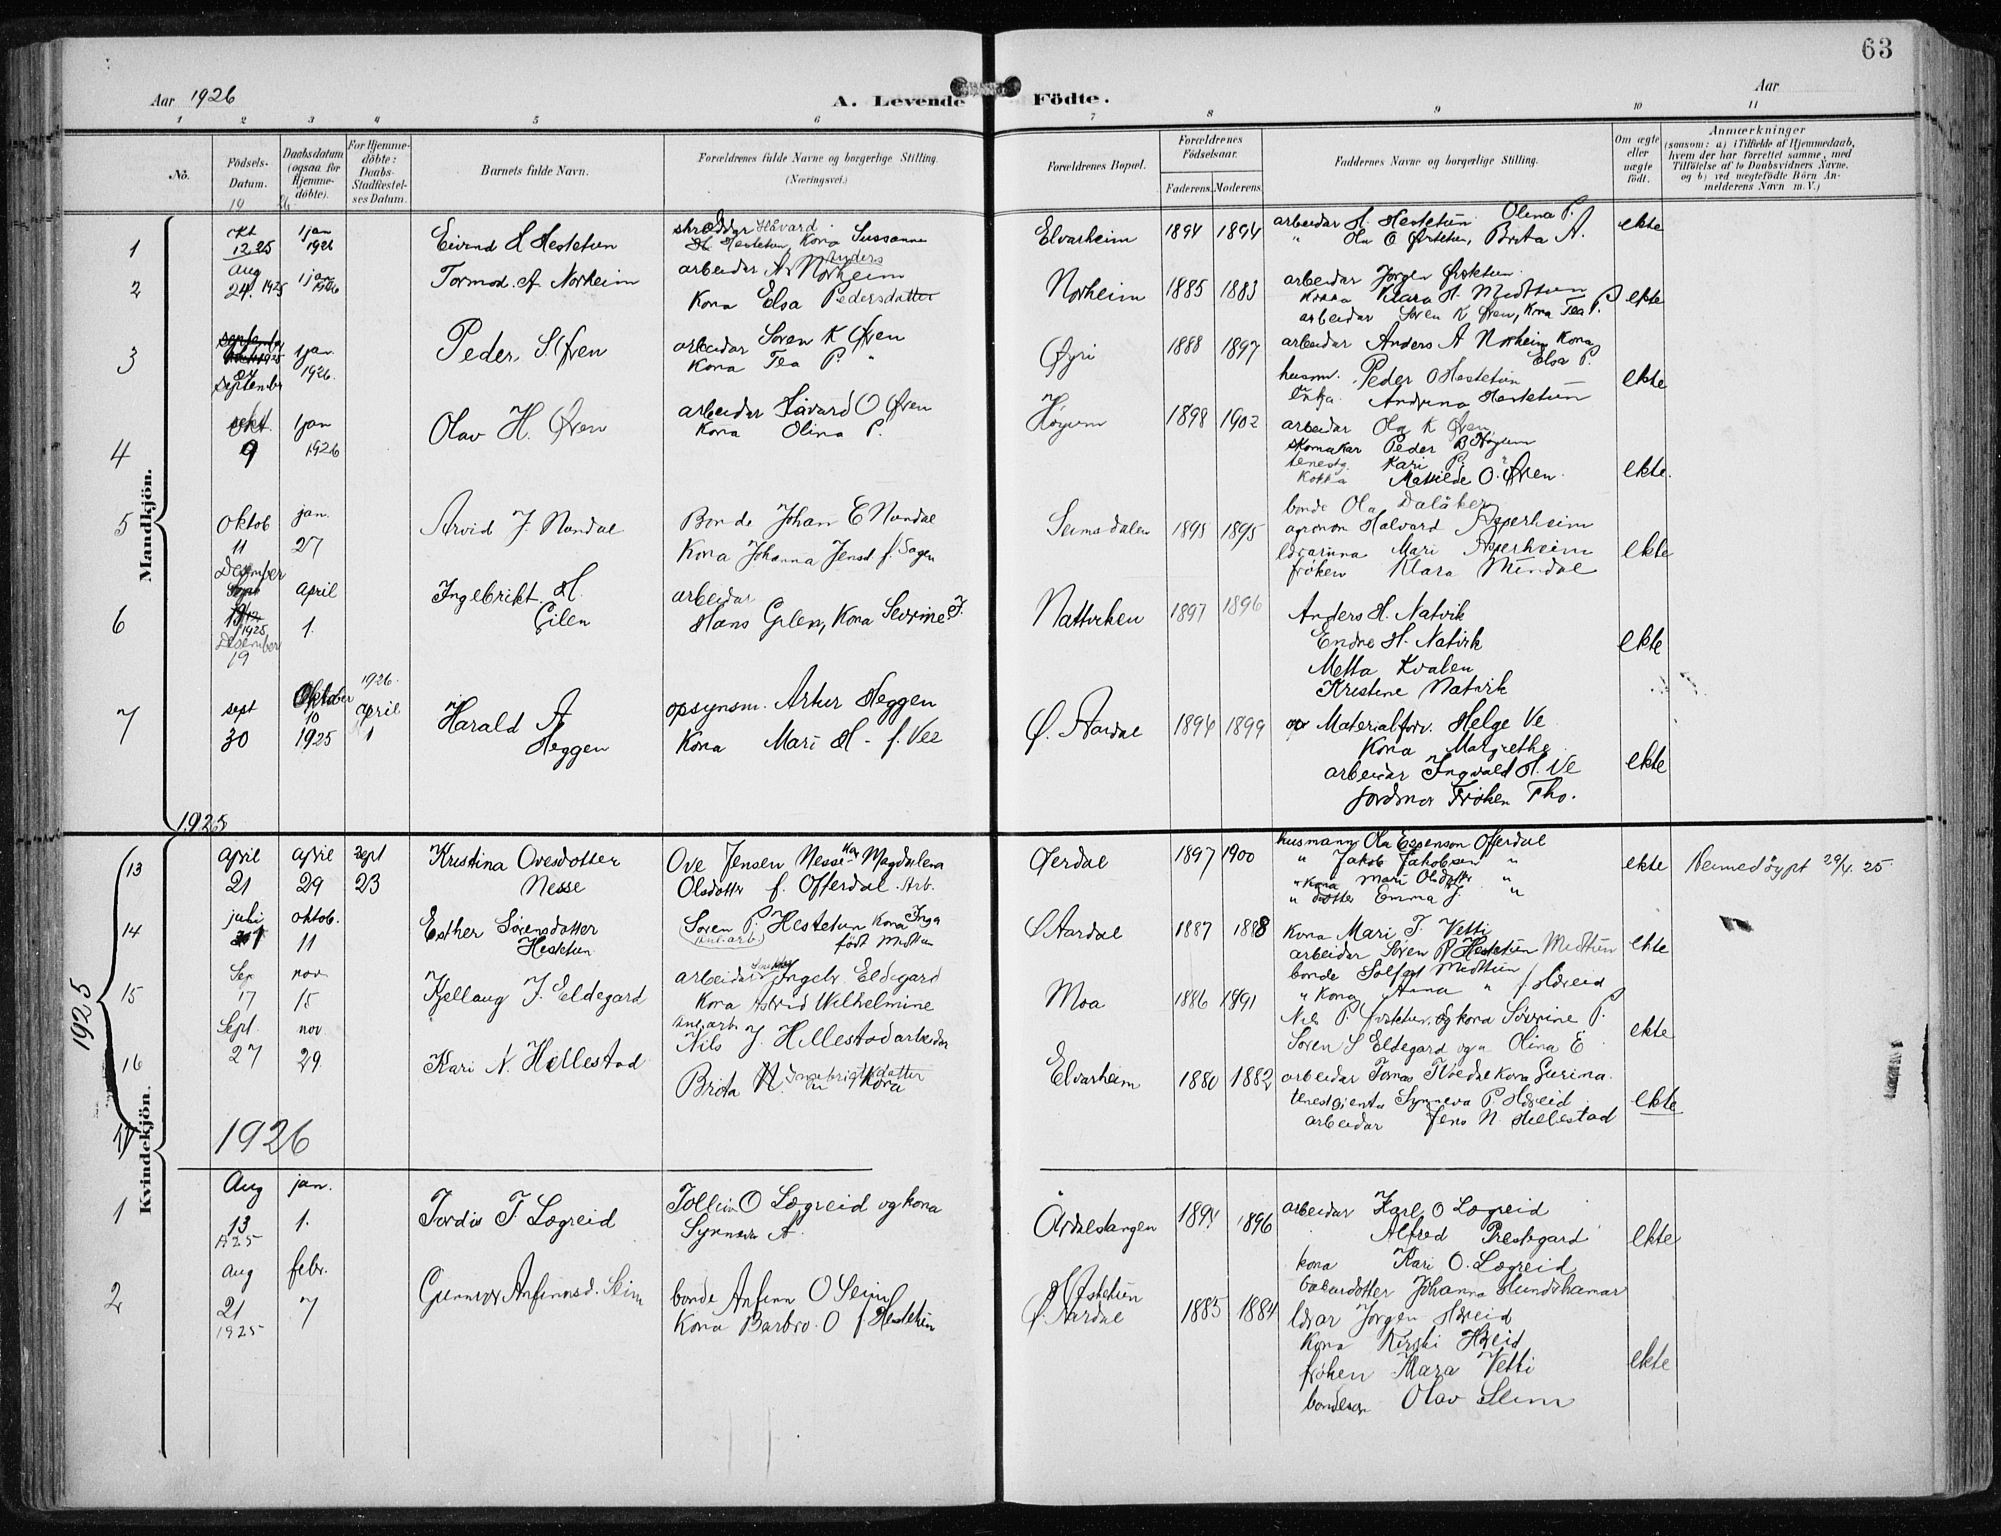 63
Aar 1926
A. Levende Födte.
Aar
1 2 3 4 5 6 7 8 9 10 11
No.
Födsels-Datum.
Daabsdatum (ogsaa for Hjemme-döbte).
For Hjemme-döbte: Daabs-Stadfæstel-ses Datum.
Barnets fulde Navn.
Forældrenes fulde Navne og borgerlige Stilling. (Næringsvei.)
Forældrenes Bopæl.
Forældrenes Födselsaar.
Faderens. Moderens.
Faddernes Navne og borgerlige Stilling.
Om ægte eller uægte födt.
Anmærkninger
(saasom: a) i Tilfælde af Hjemmedaab, hvem der har forrettet samme, med Tilföielse af to Daabsvidners Navne. og b) ved uægtefödte Börn Anmelderens Navn m. V.)
Mandkjön.
1 okt 12.25 1 jan 1926 Eivind H Hestetun
skræddar Håvard Hestetun, Kona Sussanna
Elvarheim 1894 1894
arbeidar H. Hestetun Olina P.
" Ola O Øistetun, Brita A.
ekte
2 Aug 24. 1925 1 jan 1926 Tormod. A. Norheim
arbeidar Anders Norheim
Kona Elsa Pedersdatter
Norheim 1885 1883
arbeidar Jørgen Øistetun
Kokka Klara H. Midttun
arbeidar Søren K Øren, Kona Tea P.
ekte
3 september 1 jan 1926. Peder S Øren
arbeidar Søren K Øren
Kona Tea P. "
Øyri 1888 1897
arbeidar Anders A Norheim Kona Elsa P.
husm. Peder O Hestetun
Enkja Andrina Hestetun
ekte
4 Okt. 9 1 jan 1926 Olav H. Øren
arbeidar Håvard O Øren
Kona Olina P.
Høgum 1898 1902
arbeidar Ola K Øren,
skomakar Peder B Høgum
tenestg. Kari P. "
Kokka Matilde O. Øren
ekte.
5 Oktob 11 jan. 27 Arvid J. Nundal
Bonde Johan E Nundal
Kona Johanna Jensd f. Sagen
Seimsdalen 1895 1895
bonde Ola Daläker
agronom Halvard Asperheim
lærarinna Mari Asperheim
frøken Klara Nundal
ekte
6 Desember 1925 Desember 19 April 1. Ingebrikt H. Gilen
arbeidar
Hans Gilen, Kona Severine J.
Nattviken 1897 1896
Anders H. Natvik
Endre H. Natvik
Metta Kvalen
Kristine Natvik
ekte
7 sept 30 Oktober 10 1925 1926. april 1 Harald A Heggen
opsynsm. Artur Heggen
Kona Mari H - f. Vee
Ø. Aardal 1894 1899
Materialforv. Helge Ve
Kona Margrethe
arbeidar Ingvald H. Ve
jordmor Frøken Tho.
ekte
1925
Kvindekjön.
1925
13 april 21 april 29 sept 23 Kristina Ovesdotter Nesse
Ove Jensen Nesse Magdalena
Olsdotter f. Offerdal. Arb.
Øerdal 1897 1900
husmann Ola Espenson Offerdal
" Jakob Jakobsen "
" Kona Mari Olsdotter "
" dotter Emma J. "
ekte Heimedøypt 29/4. 25
14 juli oktob. 11 Esther Sørensdotter Hestetun
Søren P. Hestetun Kona Inga
født Midttun
Ø Aardal 1887 1888
Kona Mari T. Vetti
arbeidar Søren P Hestetun Midttun
bonde Solfest Midttun
" Kona Anna " f Hæreid
ekte
15 Sep 17 nov 15 Kjellaug J. Eldegard
arbeidar Ingebr Eldegard
Kona Astrid Wilhelmine
Moa 1886 1891
Nils P. Øistetun og kona Søverine P.
Søren S Eldegard og " Olina E
ekte
16 Sept. 27 nov 29 Kari N. Hillestad
Nils J. Hillestad arbeidar
Brita N. Ingebrigtsdatter Kona
Elvarheim 1880 1882
arbeidar Tomas Tvedæ Kona Gurina.
tenestgjenta Synneva P. Hæreid
arbeidar Jens N. Hillestad
ekte
17 1926
1 Aug 13 1925 jan. 1. Tordis T Lægreid
Tolleiv O Lægreid og kona
Synneva A.
Årdalstangen 1894 1896
arbeidar Karl O Lægreid
Alfred Prestegard
kona Kari O. Lægreid
bakardotter Johanna Hundshamar
ekte
2 Aug 21 1925 febr. 7 Gunvor Anfinnsd. Seim
bonde Anfinn O Seim
Kona Barbro. O f Hestetun
Hestetun
Ø. Aardal 1885 1884
lærar Jørgen Hæreid
Kona Kirsti Hæreid
frøken Mara Vetti
bonde Olav Seim
ekte